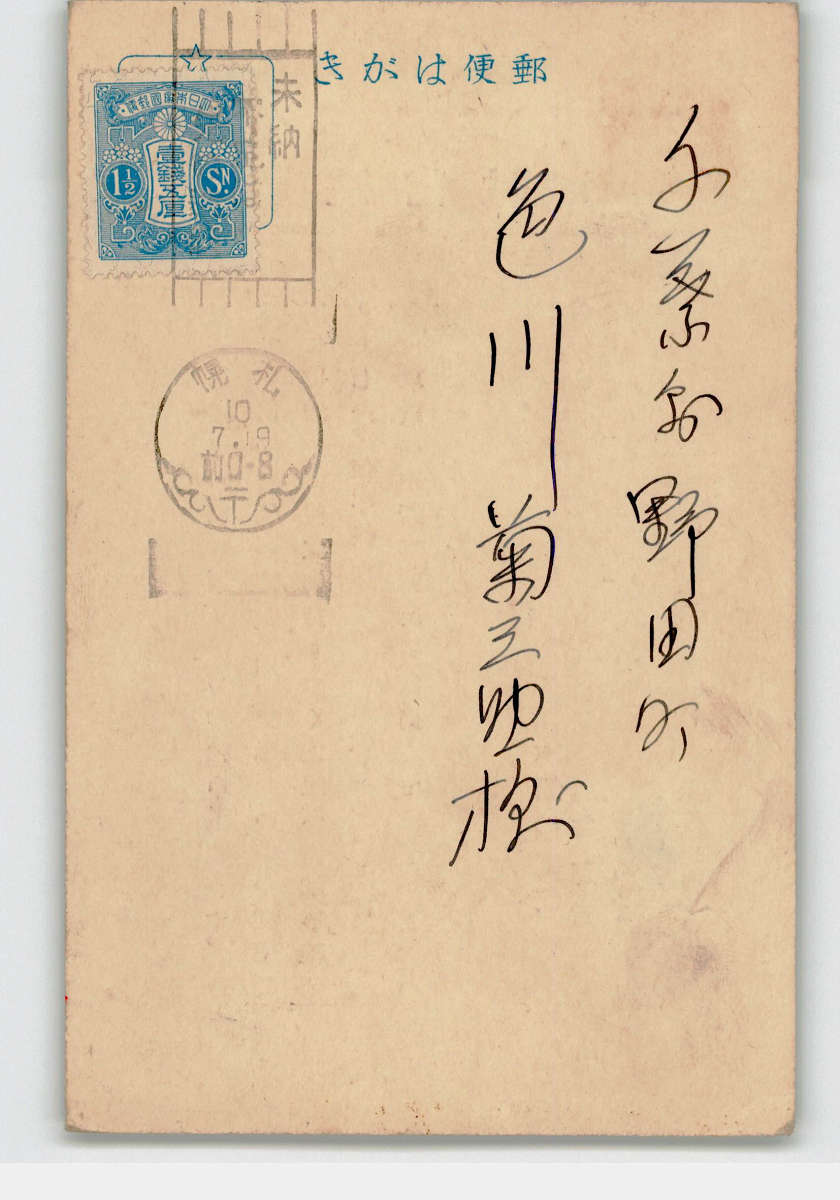 郵便はがき
大日本帝國郵便
壹錢五厘
1½ Sɴ.
未納
札幌
10
7.19
前0-8
千葉縣野田町
色川菊三助様